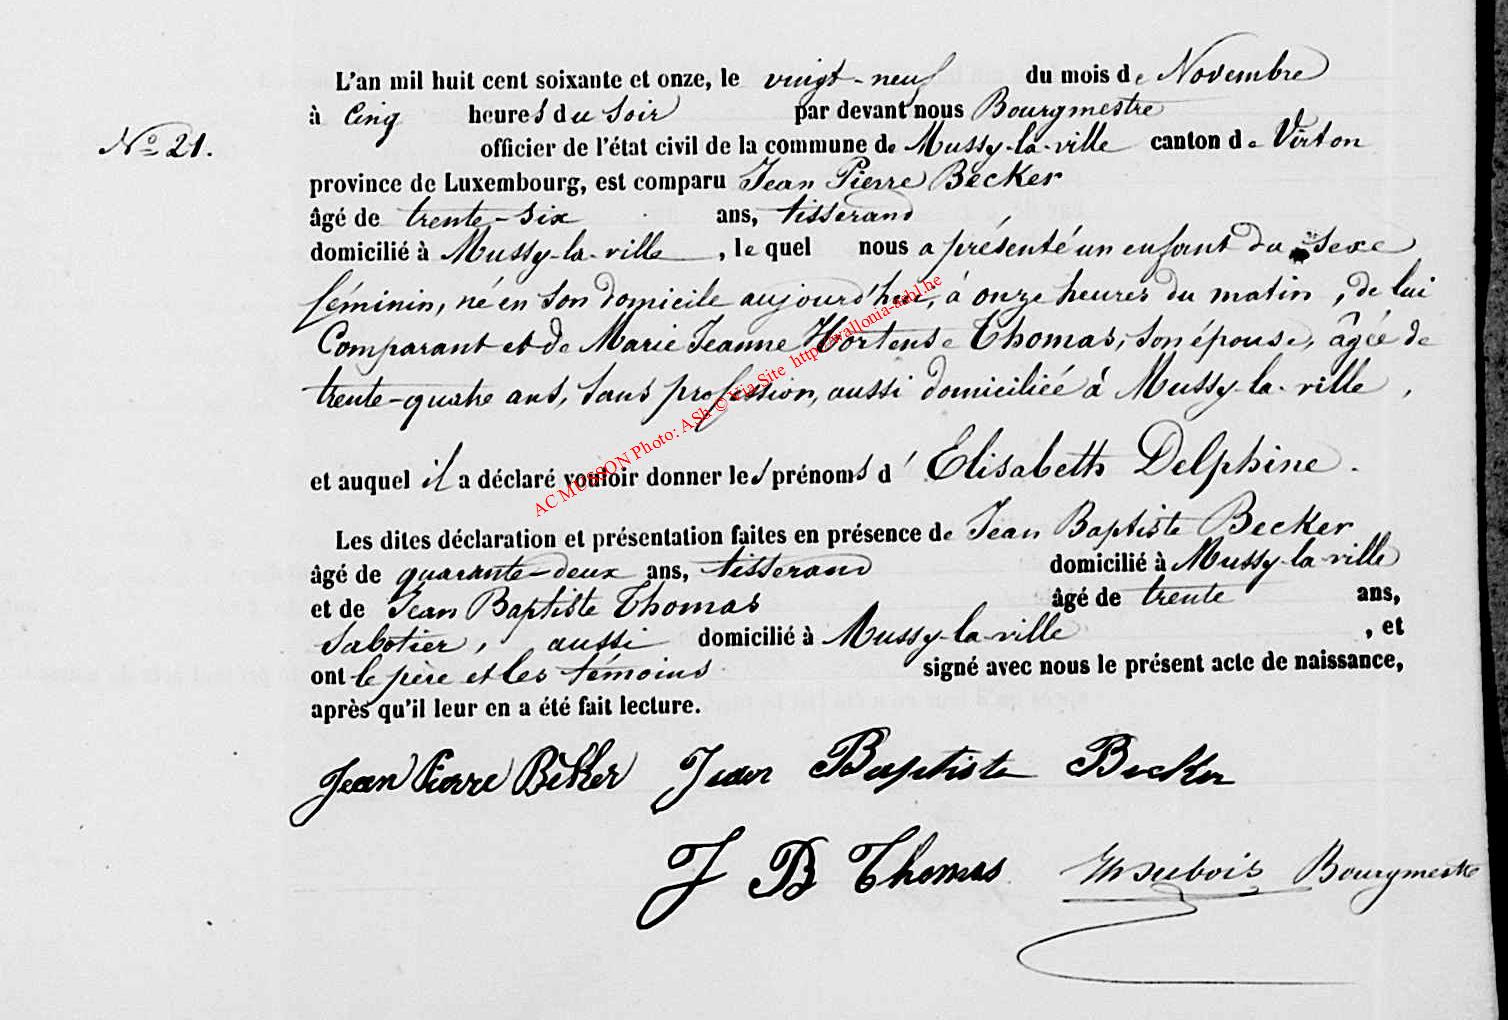 L'an mil huit cent soixante et onze, le vingt-neuf du mois de Novembre
à Cinq heures du Soir par devant nous Bourgmestre
No 21.
officier de l'état civil de la commune de Mussy-la-ville canton de Virton
province de Luxembourg, est comparu Jean Pierre Becker
âgé de trente-six ans, tisserand
domicilié à Mussy-la-ville, le quel nous a présenté un enfant du sexe
féminin, né en son domicile aujourd'hui, à onze heures du matin, de lui
Comparant et de Marie Jeanne Hortense Thomas, son épouse, âgée de
trente-quatre ans, sans profession, aussi domiciliée à Mussy-la-ville,
AC MUSSON Photo: ASh © Via Site http://wallonia-asbl.be
et auquel il a déclaré vouloir donner les prénoms d' Elisabeth Delphine.
Les dites déclaration et présentation faites en présence de Jean Baptiste Becker
âgé de quarante-deux ans, tisserand domicilié à Mussy-la-ville
et de Jean Baptiste Thomas âgé de trente ans,
Sabotier, aussi domicilié à Mussy-la-ville, et
ont le père et les témoins signé avec nous le présent acte de naissance,
après qu'il leur en a été fait lecture.
Jean Pierre Béker Jean Baptiste Becker
J B Thomas Dubois Bourgmestre